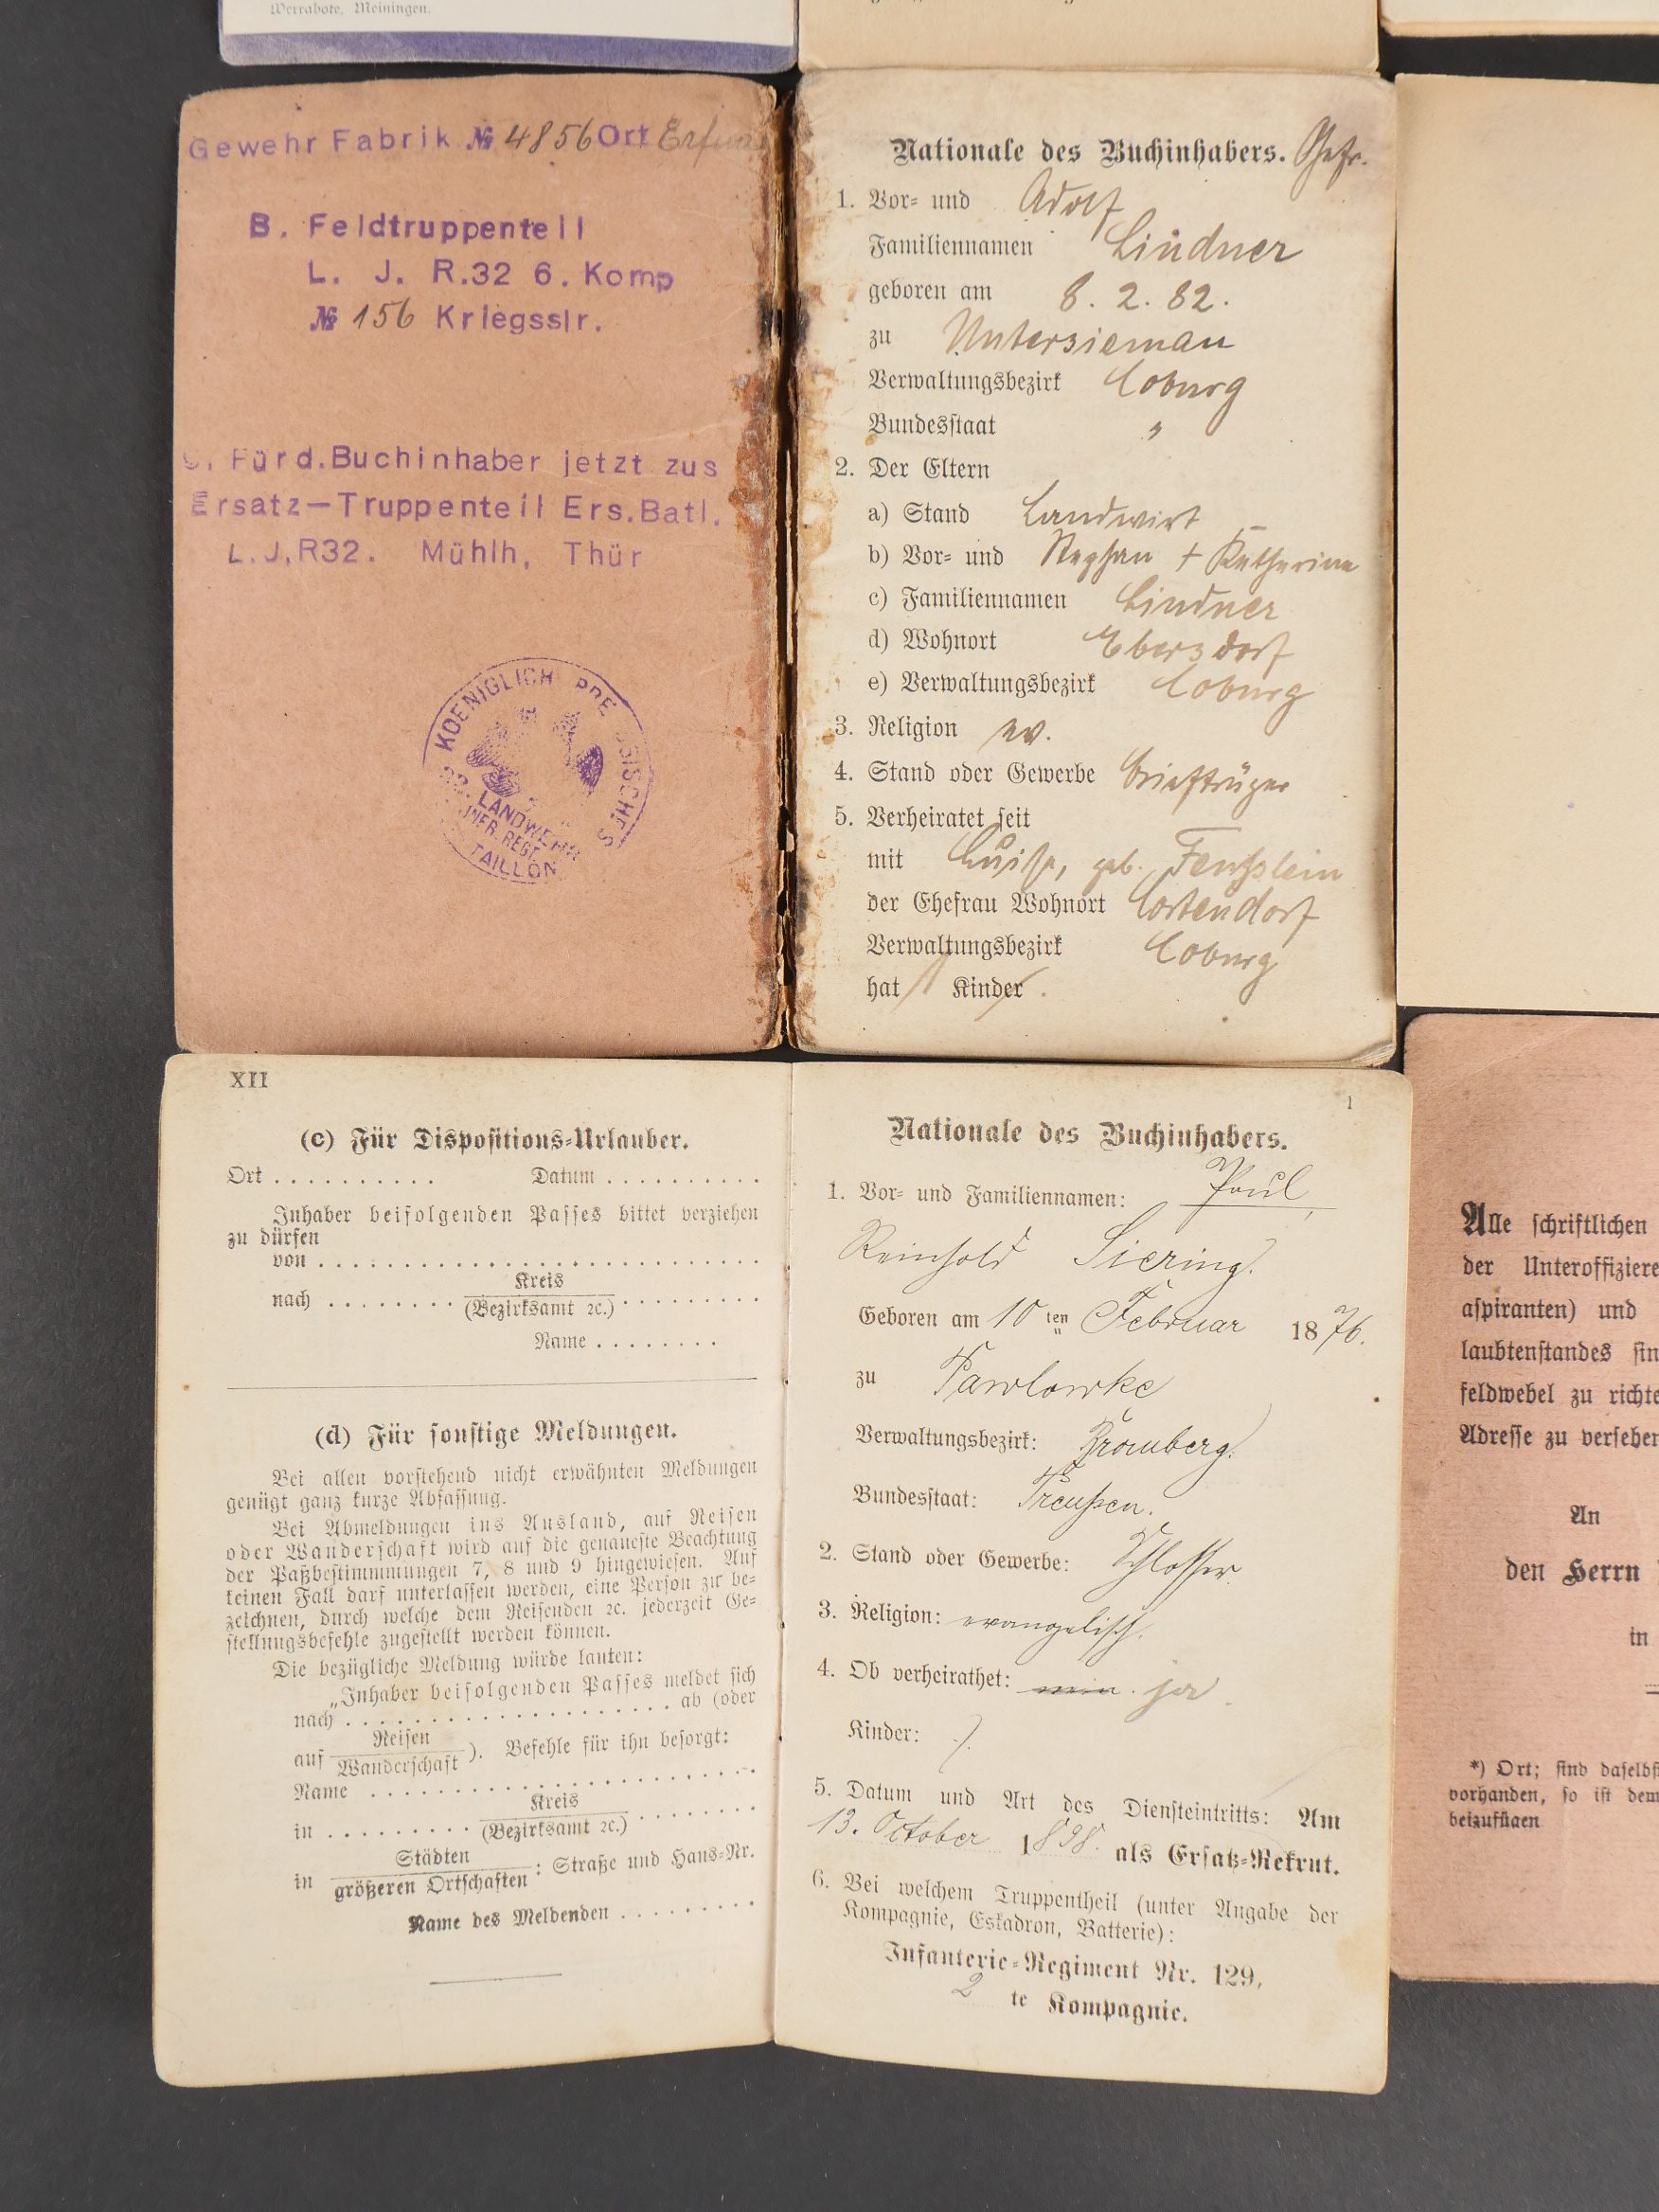 Werrabote, Meiningen.
Gewehr Fabrik № 4856 Ort
B. Feldtruppenteil
L. J. R.32 6. Komp
№ 156 Kriegsslr.
Für d. Buchinhaber jetzt zus
Ersatz-Truppenteil Ers.Batl.
L.J.R32. Mühlh, Thür
KOENIGLICH PRE SSISCHES
LANDWEHR
INFR. REGT.
TAILLON
Nationale des Buchinhabers. Gefr.
1. Vor- und Adolf
Familiennamen Lindner
geboren am 8. 2. 82.
zu Untersiemau
Verwaltungsbezirk Coburg
Bundesstaat "
2. Der Eltern
a) Stand Landwirt
b) Vor- und Stephan + Katherina
c) Familiennamen Lindner
d) Wohnort Ebersdorf
e) Verwaltungsbezirk Coburg
3. Religion ev.
4. Stand oder Gewerbe Briefträger
5. Verheiratet seit
mit Luise, geb.
der Ehefrau Wohnort Cortendorf
Verwaltungsbezirk Coburg
hat / Kinder.
XII
(c) Für Dispositions-Urlauber.
Ort . . . . . . . . . . Datum . . . . . . . . . .
Inhaber beifolgenden Passes bittet verziehen
zu dürfen
von . . . . . . . . . . . . . . . . . . . . . . . . . .
Kreis
nach . . . . . . . . (Bezirksamt ꝛc.) . . . . . . . . .
Name . . . . . . . .
(d) Für sonstige Meldungen.
Bei allen vorstehend nicht erwähnten Meldungen
genügt ganz kurze Abfassung.
Bei Abmeldungen ins Ausland, auf Reisen
oder Wanderschaft wird auf die genaueste Beachtung
der Paßbestimmungen 7, 8 und 9 hingewiesen. Auf
keinen Fall darf unterlassen werden, eine Person zu be-
zeichnen, durch welche dem Reisenden ꝛc. jederzeit Ge-
stellungsbefehle zugestellt werden können.
Die bezügliche Meldung würde lauten:
„Inhaber beifolgenden Passes meldet sich
nach . . . . . . . . . . . . . . . . . . . . ab (oder
Reisen
auf Wanderschaft ). Befehle für ihn besorgt:
Name . . . . . . . . . . . . . . . . . . . . . .
Kreis
in . . . . . . . . . (Bezirksamt ꝛc.) . . . . . . . .
Städten
in größeren Ortschaften : Straße und Haus-Nr.
Name des Meldenden . . . . . . . . .
1
Nationale des Buchinhabers.
1. Vor- und Familiennamen: Paul,
Reinhold Siering.
Geboren am 10 ten Februar 1876.
zu Pawlowke
Verwaltungsbezirk: Bromberg.
Bundesstaat: Preußen.
2. Stand oder Gewerbe: Schlosser.
3. Religion: evangelisch.
4. Ob verheirathet: nein. ja.
Kinder: ./.
5. Datum und Art des Diensteintritts: Am
13. October 1898. als Ersatz-Rekrut.
6. Bei welchem Truppentheil (unter Angabe der
Kompagnie, Eskadron, Batterie):
Infanterie-Regiment Nr. 129,
2 te Kompagnie.
Alle schriftlichen
der Unteroffiziere
aspiranten) und
laubtenstandes
feldwebel zu
Adresse zu
An
den Herrn
in
*) Ort; sind
vorhanden, so ist
beizufügen